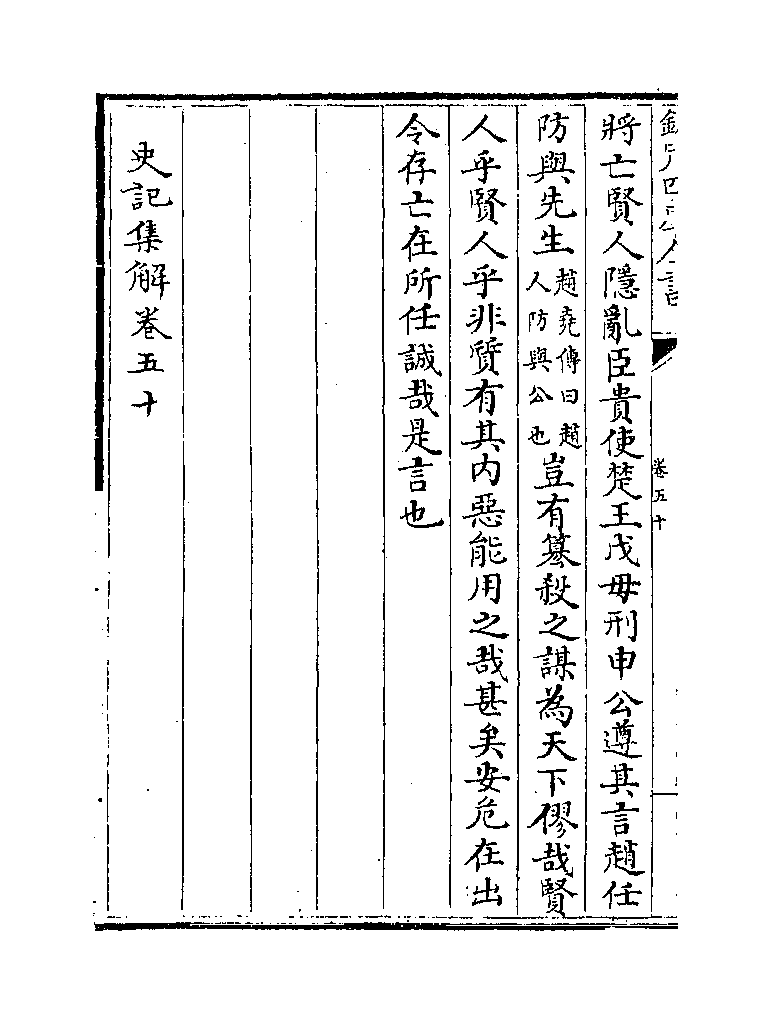 將亡賢人隱亂臣貴使楚王戊毋刑申公遵其言趙任
防與先生趙堯傳曰趙人防與公也豈有簒殺之謀為天下僇哉賢
人乎賢人乎非質有其内惡能用之哉甚矣安危在出
令存亡在所任誠哉是言也
史記集解卷五十
卷五十